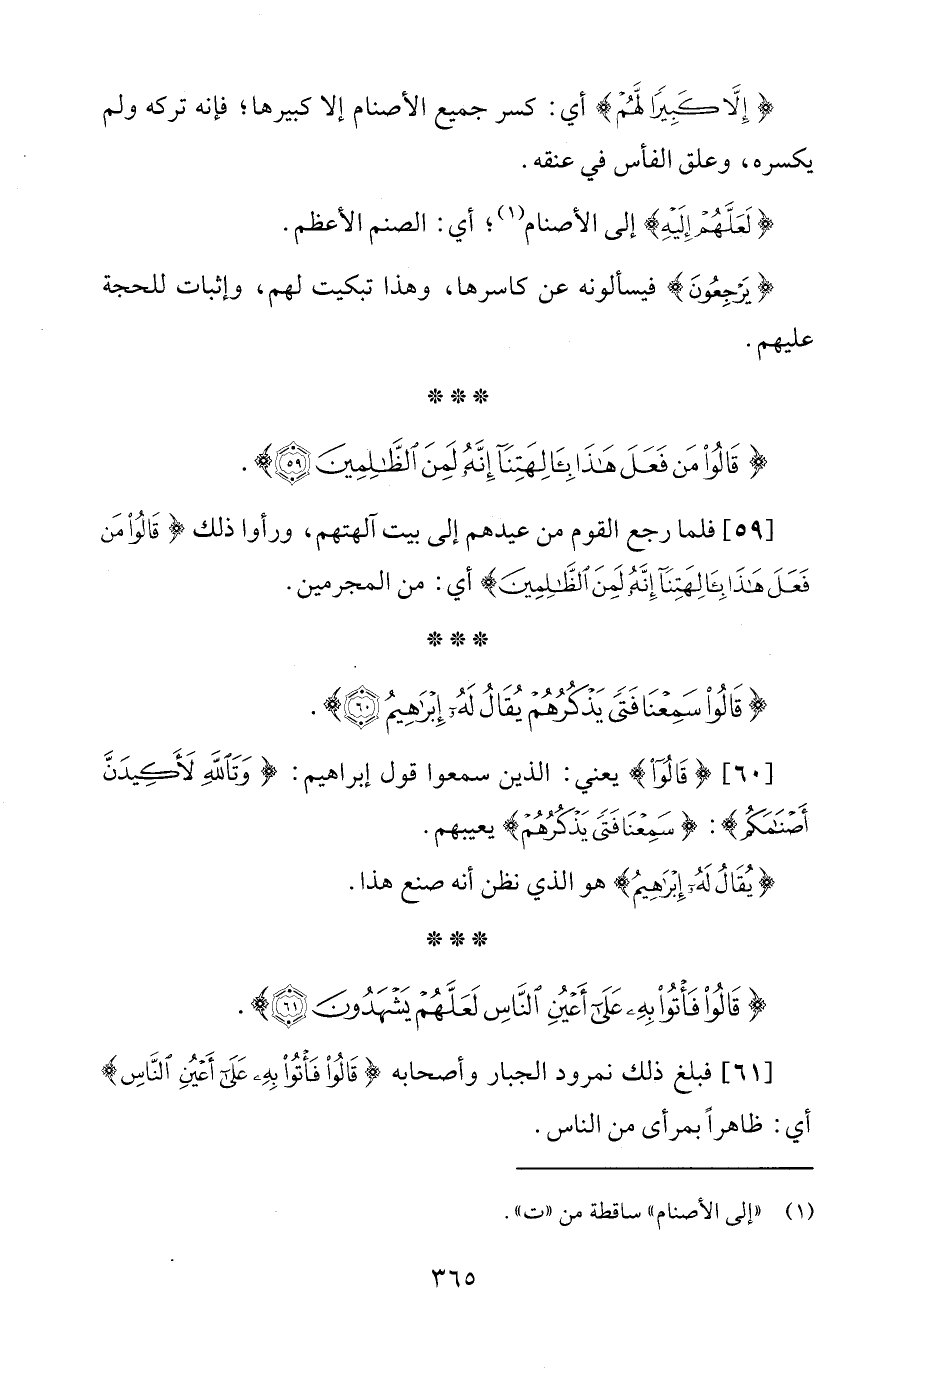 ﴿ إِلَّا كَبِيرًا لَّهُمْ ﴾ أي: كسر جميع الأصنام إلا كبيرها؛ فإنه تركه ولم
يكسره، وعلق الفأس في عنقه.
﴿ لَعَلَّهُمْ إِلَيْهِ ﴾ إلى الأصنام(١)؛ أي: الصنم الأعظم.
﴿ يَرْجِعُونَ ﴾ فيسألونه عن كاسرها، وهذا تبكيت لهم، وإثبات للحجة
عليهم.
* * *
﴿ قَالُوا۟ مَن فَعَلَ هَـٰذَا بِـَٔالِهَتِنَآ إِنَّهُۥ لَمِنَ ٱلظَّـٰلِمِينَ ٥٩ ﴾.
[٥٩] فلما رجع القوم من عيدهم إلى بيت آلهتهم، ورأوا ذلك ﴿ قَالُوا۟ مَن
فَعَلَ هَـٰذَا بِـَٔالِهَتِنَآ إِنَّهُۥ لَمِنَ ٱلظَّـٰلِمِينَ ﴾ أي: من المجرمين.
* * *
﴿ قَالُوا۟ سَمِعْنَا فَتًى يَذْكُرُهُمْ يُقَالُ لَهُۥٓ إِبْرَٰهِيمُ ٦٠ ﴾.
[٦٠] ﴿ قَالُوٓا۟ ﴾ يعني: الذين سمعوا قول إبراهيم: ﴿ وَتَٱللَّهِ لَأَكِيدَنَّ
أَصْنَـٰمَكُم ﴾: ﴿ سَمِعْنَا فَتًى يَذْكُرُهُمْ ﴾ يعيبهم.
﴿ يُقَالُ لَهُۥٓ إِبْرَٰهِيمُ ﴾ هو الذي نظن أنه صنع هذا.
* * *
﴿ قَالُوا۟ فَأْتُوا۟ بِهِۦ عَلَىٰٓ أَعْيُنِ ٱلنَّاسِ لَعَلَّهُمْ يَشْهَدُونَ ٦١ ﴾.
[٦١] فبلغ ذلك نمرود الجبار وأصحابه ﴿ قَالُوا۟ فَأْتُوا۟ بِهِۦ عَلَىٰٓ أَعْيُنِ ٱلنَّاسِ ﴾
أي: ظاهراً بمرأى من الناس.
(١) «إلى الأصنام» ساقطة من «ت».
٣٦٥